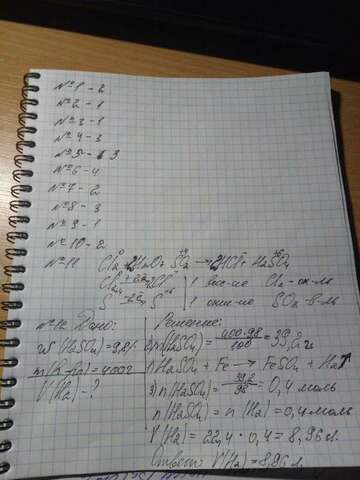 № 1 - 2
№ 2 - 1
№ 3 - 1
№ 4 - 3
№ 5 - 3
№ 6 - 4
№ 7 - 2
№ 8 - 3
№ 9 - 1
№ 10 - 2
№ 11 Cl₂⁰ + 2H₂O + SO₂ → 2HCl + H₂SO₄
1 Cl₂ - ок-ль
S⁺⁴ S⁺⁶ 1 SO₂ - в-ль
№ 12 Дано:
w(H₂SO₄) = 9,8%
m(р-ра) = 400г
V(H₂) = ?
Решение:
m(H₂SO₄) = 400·9,8 / 100 = 39,2 г
H₂SO₄ + Fe → FeSO₄ + H₂↑
3) n(H₂SO₄) = 39,2 / 98 = 0,4 моль
n(H₂SO₄) = n(H₂) = 0,4 моль
V(H₂) = 22,4 · 0,4 = 8,96 л.
Ответ: V(H₂) = 8,96 л.